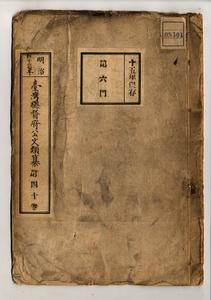 05101
十五年保存
第六門
明治
臺灣總督府公文類纂
第四十卷